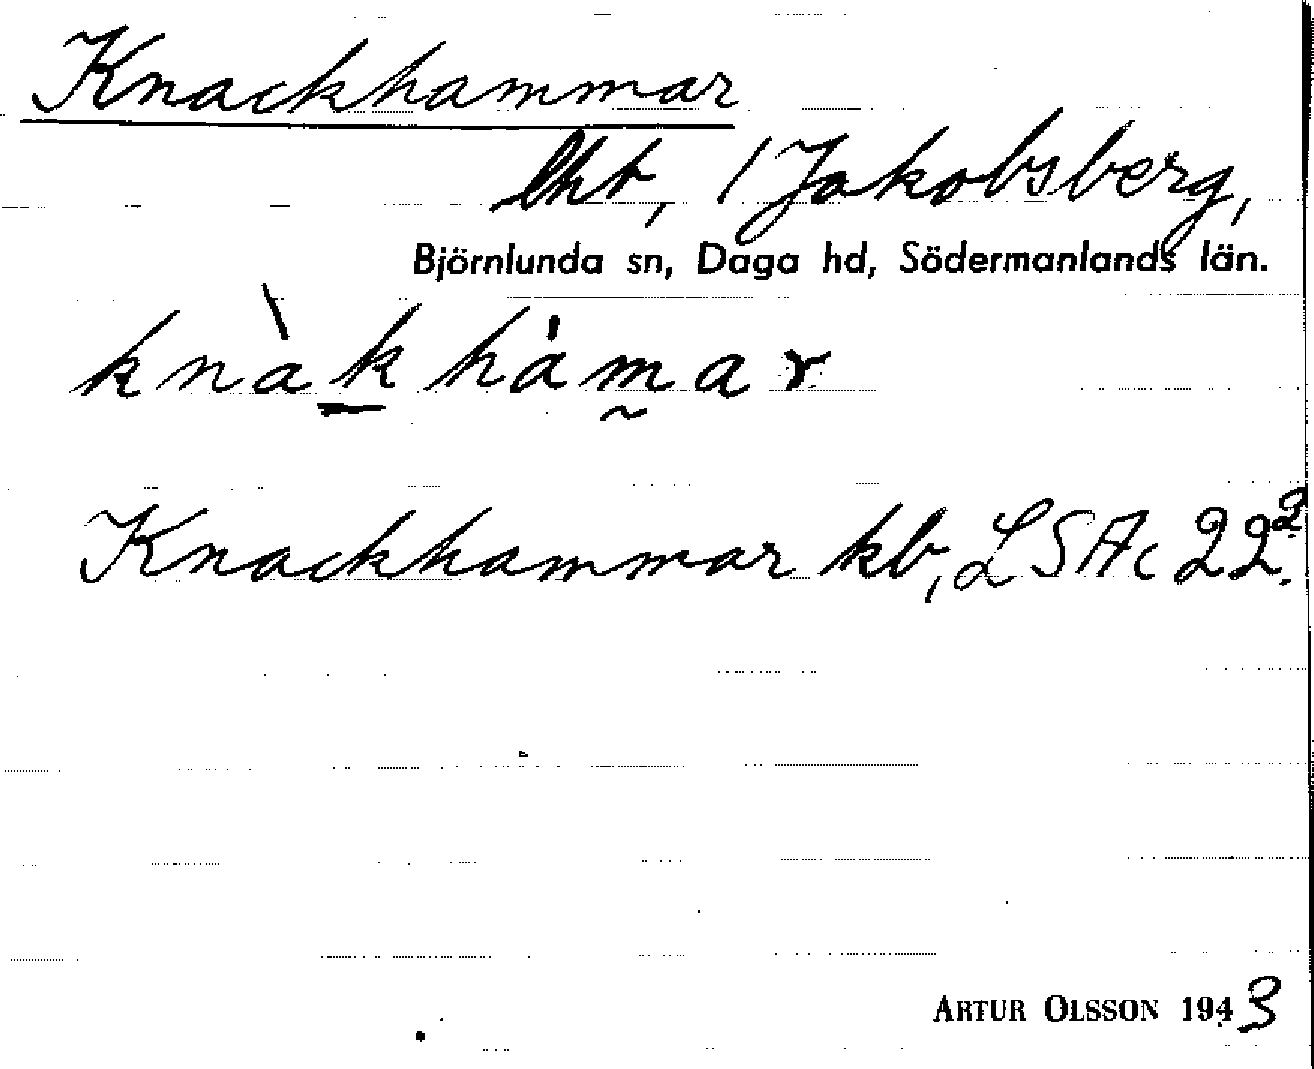 Knackhammar
lht, 1 Jakobsberg,
Björnlunda sn, Daga hd, Södermanlands län.
knàk̲hàm̰ar
Knackhammar kb, LSA c 22².
ARTUR OLSSON 1943